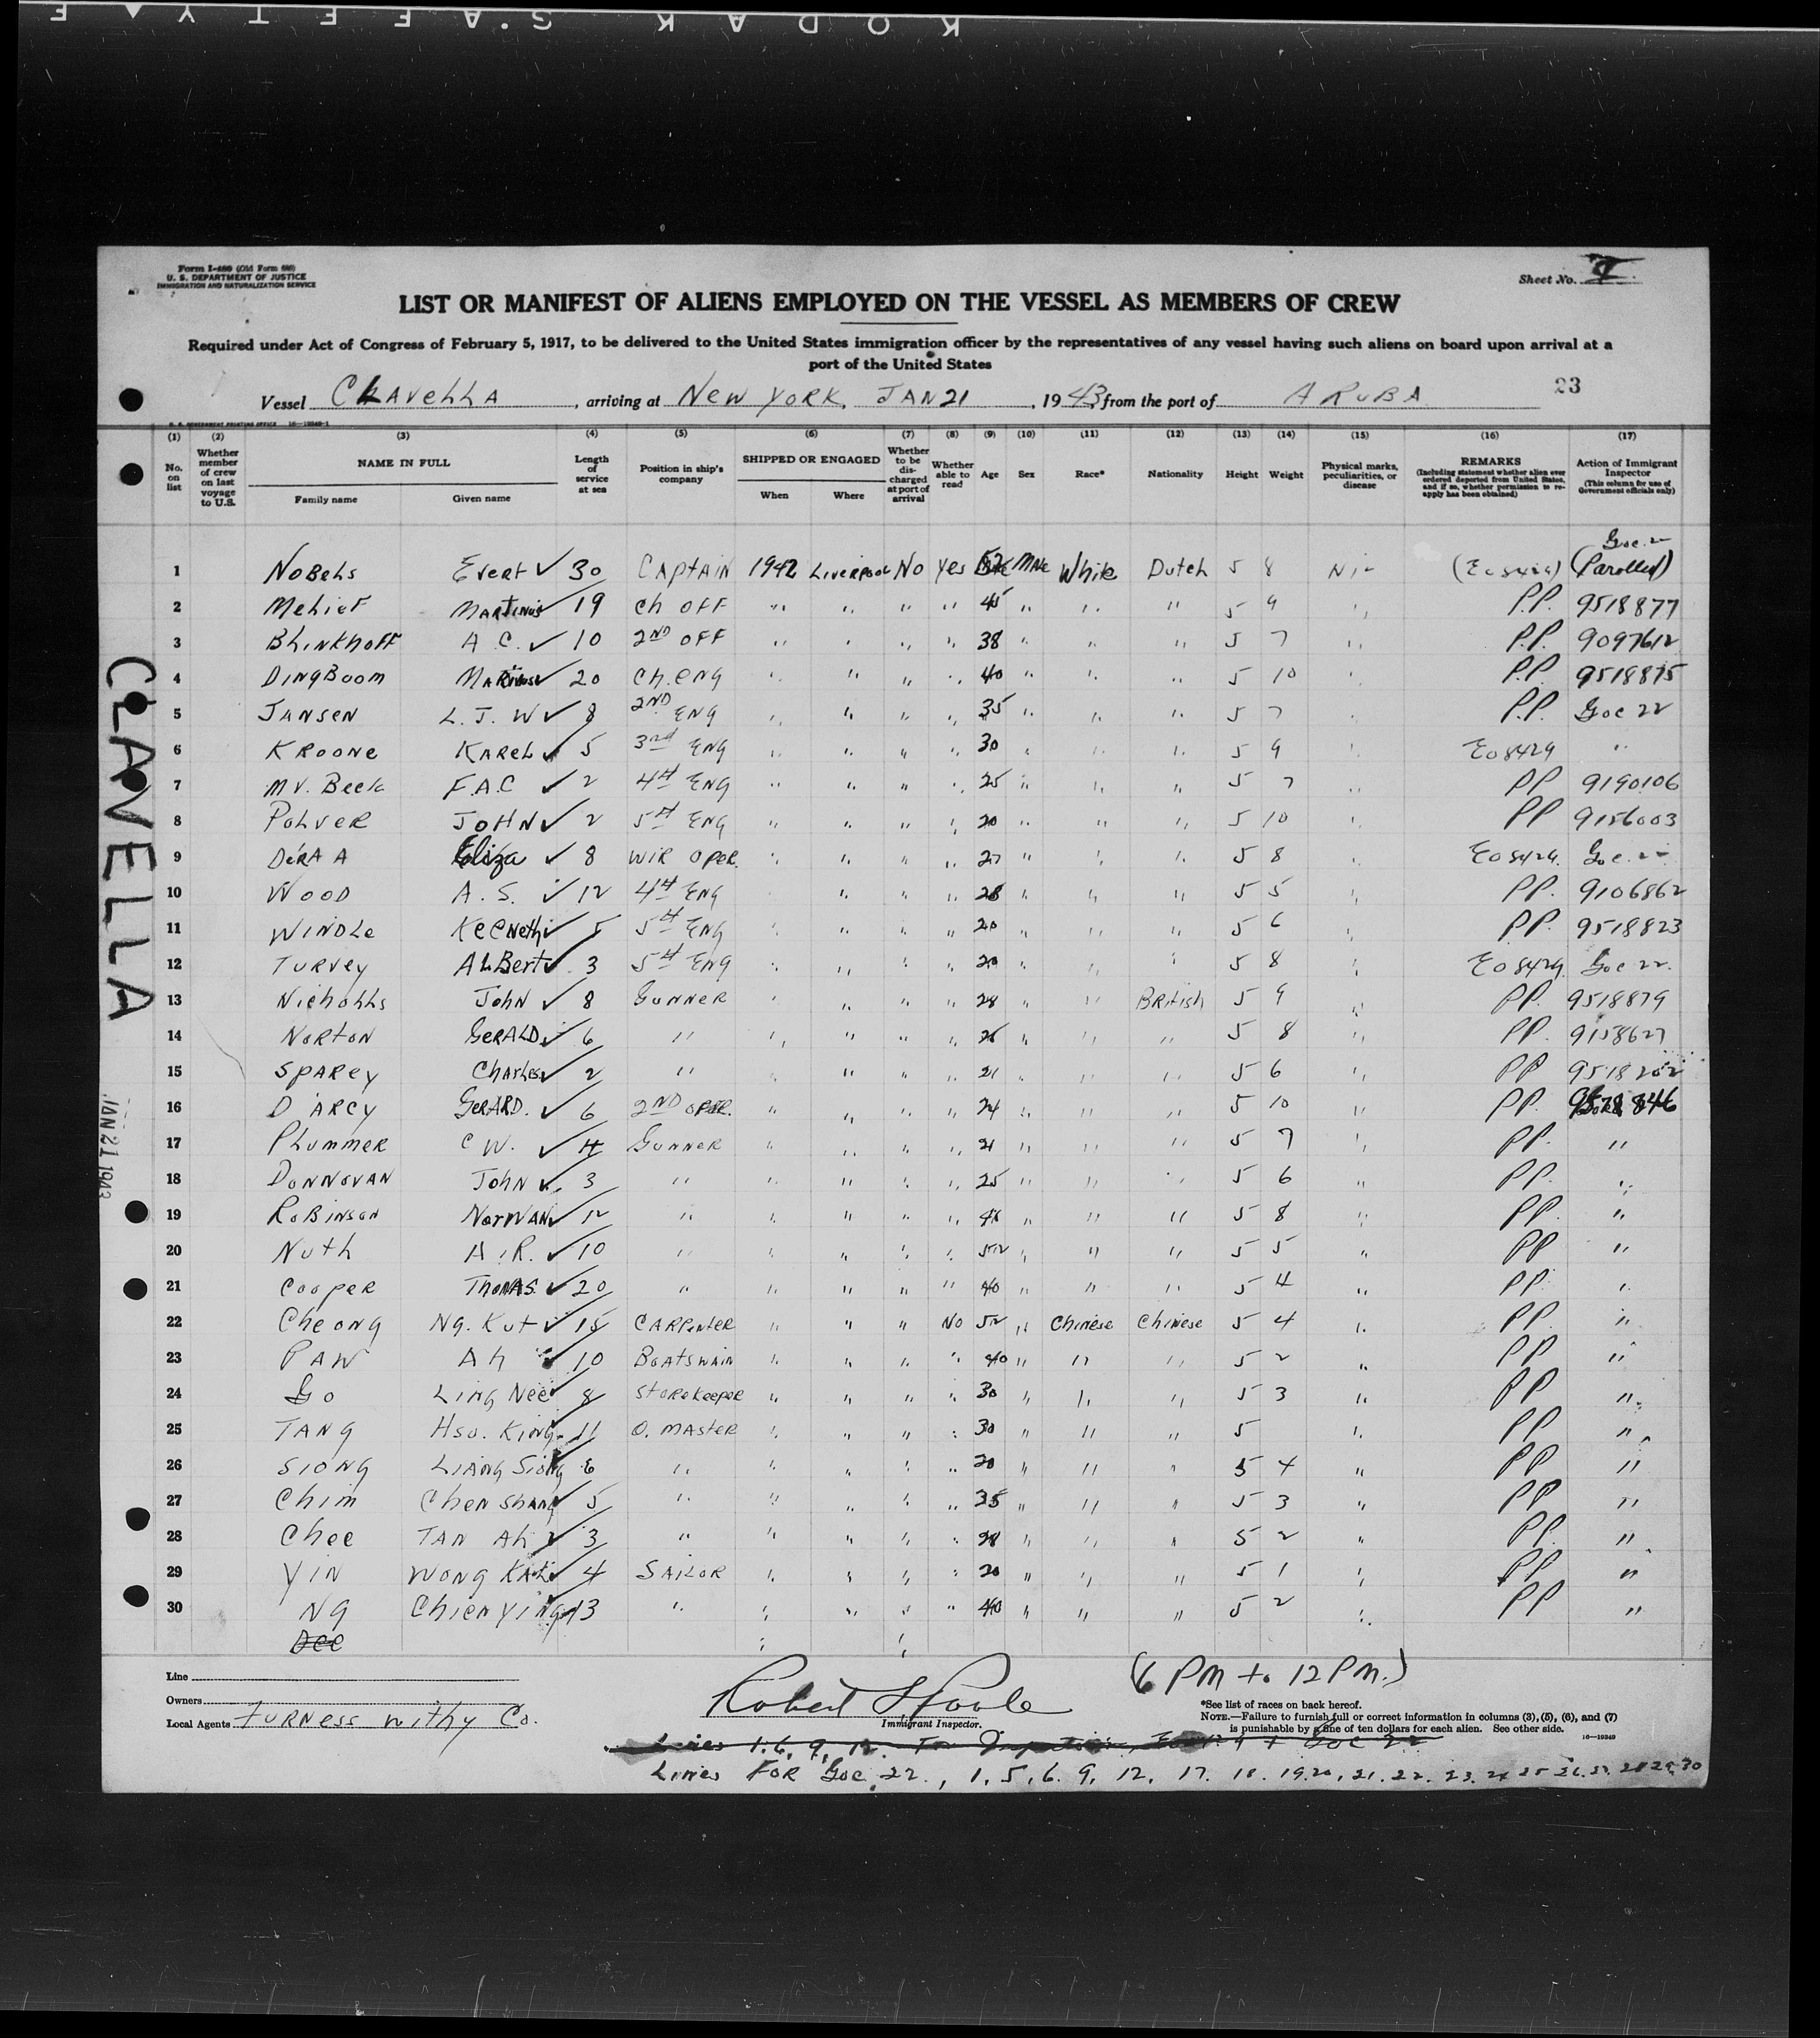 KODAK S.AFETY F
Form I-480 (Old Form 680)
U. S. DEPARTMENT OF JUSTICE
IMMIGRATION AND NATURALIZATION SERVICE
Sheet No.
LIST OR MANIFEST OF ALIENS EMPLOYED ON THE VESSEL AS MEMBERS OF CREW
Required under Act of Congress of February 5, 1917, to be delivered to the United States immigration officer by the representatives of any vessel having such aliens on board upon arrival at a
port of the United States
Vessel CLAVELLA, arriving at NEW YORK, JAN 21, 1943, from the port of ARUBA 23
(1) (2) (3) (4) (5) (6) (7) (8) (9) (10) (11) (12) (13) (14) (15) (16) (17)
No. on list Whether member of crew on last voyage to U.S. NAME IN FULL Family name Given name Length of service at sea Position in ship's company SHIPPED OR ENGAGED When Where Whether to be discharged at port of arrival Whether able to read Age Sex Race* Nationality Height Weight Physical marks, peculiarities, or disease REMARKS (Including statement whether alien ever ordered deported from United States, and if so, whether permission to reapply has been obtained) Action of Immigrant Inspector (This column for use of Government officials only)
1 Nobels Evert ✓ 30 Captain 1942 Liverpool No yes 52 Male White Dutch 5 8 Nil (Eo 8429) Goc 22 (Parolled)
2 Melief Martinus 19 Ch OFF " " " " 45 " " " 5 9 " P.P. 9518877
3 Blinkhoff A.C. ✓ 10 2ND OFF " " " " 38 " " " 5 7 " P.P. 9097612
4 Dingboom Marinus 20 Ch. Eng " " " " 40 " " " 5 10 " P.P. 9518875
5 Jansen L.J.W ✓ 8 2ND ENG " " " " 35 " " " 5 7 " P.P. Goc 22
6 Kroone Karel ✓ 5 3rd ENG " " " " 30 " " " 5 9 " Eo 8429 "
7 M V. Beek F.A.C ✓ 2 4th ENG " " " " 25 " " " 5 7 " PP 9190106
8 Polver JOHN ✓ 2 5th ENG " " " " 20 " " " 5 10 " PP 9156003
9 DéRA A Eliza ✓ 8 WIR OPER. " " " " 27 " " " 5 8 " Eo 8429. Goc. 22
10 Wood A.S. ✓ 12 4th ENG " " " 28 " " " 5 5 " PP. 9106862
11 Windle Keeneth ✓ 5 5th ENG " " " " 20 " " " 5 6 " PP. 9518823
12 Turvey Albert ✓ 3 5th ENG " " " " 20 " " " 5 8 " Eo 8429 Goc 22.
13 Nicholls John ✓ 8 Gunner " " " " 28 " " British 5 9 " PP. 9518879
14 Norton Gerald ✓ 6 " " " " " 26 " " " 5 8 " PP. 9158627
15 Sparey Charles ✓ 2 " " " " " 21 " " " 5 6 " PP 9518202
16 D'Arcy Gerard. ✓ 6 2ND OPER. " " " " 24 " " " 5 10 " PP. 9518846
17 Plummer C W. ✓ 4 Gunner " " " " 21 " " " 5 7 " PP. "
18 Donnovan John ✓ 3 " " " " " 25 " " " 5 6 " PP. "
19 Robinson Norman ✓ 12 " " " " " 46 " " " 5 8 " PP. "
20 Nuth A.R. ✓ 10 " " " " " 52 " " " 5 5 " PP "
21 Cooper Thomas. ✓ 20 " " " " " 40 " " " 5 4 " PP. "
22 Cheong Ng. Kut ✓ 15 Carpenter " " " No 52 " Chinese Chinese 5 4 " PP. "
23 Paw Ah ✓ 10 Boatswain " " " " 40 " " " 5 2 " PP "
24 Go Ling Nee ✓ 8 Storekeeper " " " " 30 " " " 5 3 " PP "
25 Tang Hso. King 11 Q. Master " " " " 30 " " " 5 " PP "
26 Siong Liang Siong 6 " " " " " 30 " " " 5 4 " PP "
27 Chim Chen Shang ✓ 5 " " " " " 35 " " " 5 3 " PP "
28 Chee Tan Ah ✓ 3 " " " " " 28 " " " 5 2 " PP. "
29 Yin Wong Kah ✓ 4 Sailor " " " " 20 " " " 5 1 " PP "
30 Ng Chien Ying 13 " " " " " 40 " " " 5 2 " PP "
Dee
CLAVELLA
JAN 21 1943
Line
Owners
Local Agents Furness Withy Co.
Immigrant Inspector.
(6 PM to 12 PM.)
*See list of races on back hereof.
NOTE.—Failure to furnish full or correct information in columns (3), (5), (6), and (7)
is punishable by a fine of ten dollars for each alien. See other side.
Lines 1, 6, 9, 12
Lines FOR Goc. 22., 1, 5, 6, 9, 12, 17, 18, 19, 20, 21, 22, 23, 24, 25, 26, 27, 28, 29, 30